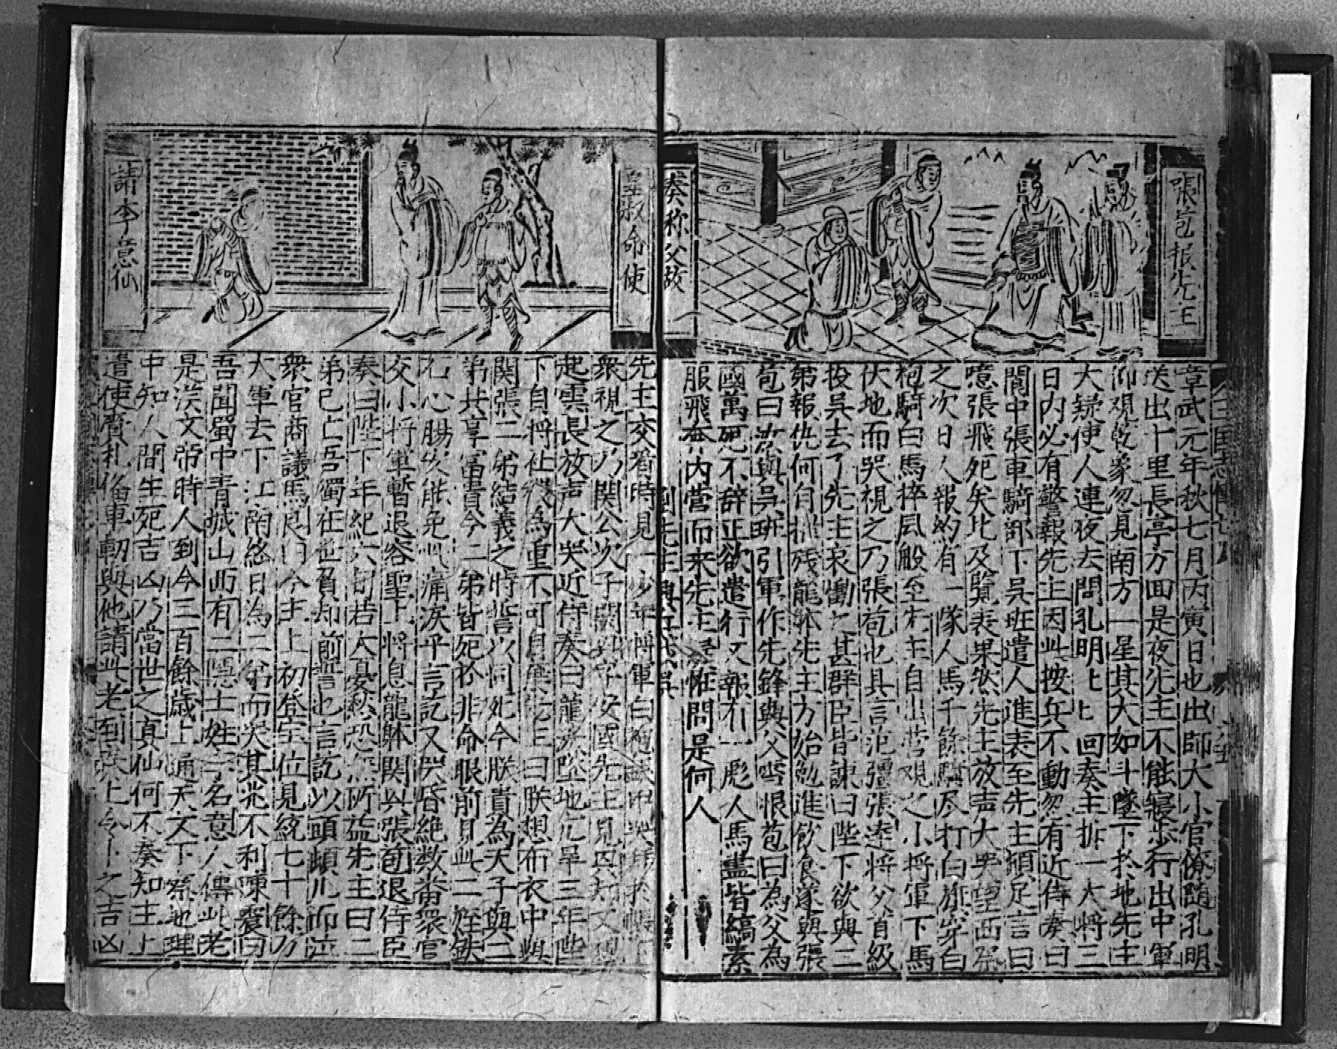 張苞報先主
奏称父故
章武元年秋七月丙寅日也出師大小官僚随孔明
送出十里長亭方面是夜先主不能寢步行出中軍
仰观乾象忽見南方一星其大如斗墜下於地先主
大疑使人連夜去問孔明上上回奏主折一大將三
日内必有警報先主因此按兵不動忽有近侍奏曰
閬中張車騎部下吴班遣人進表至先主頓足言曰
噫張飛死矣比及覧表果然先主放声大哭
之次日人報約有一隊人馬千餘騎尽打白旗穿白
袍騎白馬捽風般至先主自出营观之小將軍下馬
伏地而哭視之乃張苞也具言范彊張達將父首級
投吴去了先主哀慟上甚群臣皆諫曰陛下欲與二
弟報仇何自摧残龍躰先主方始勉進飲食遂與張
苞曰汝與吴班引軍作先鋒與父雪恨苞曰為父為
國萬死不辞正欲遣行又報有一彪人馬盡皆縞素
服飛奔内营而来先主 問是何人
皇叔命使
請李意仙
先主交看時見一少年將軍白袍
衆視之乃関公次子関興字安國先主見
起雲長放声大哭近侍奏曰龍淚墜地亢旱三年陛
下自將社稷為重不可自 先主曰朕想布衣中與
関張二弟結義之時誓以同死今朕貴為天子與二
弟共享富貴今二弟皆死於非命眼前見此二姪鉄
石心腸安能免此痛淚乎言訖又哭昏絶数番衆官
交小將軍暫退容聖上將息龍躰関興張苞退侍臣
奏曰陛下年紀六旬若大哀愁恐無所益先主曰二
弟已亡吾獨在世負却前誓也言訖以頭頓几而泣
衆官商議馬良曰今主上初登宝位見統七十餘万
大軍去下江南終日為二弟而哭其兆不利陳震曰
吾聞蜀中青城山西有二隱士姓李名意人傳此老
是漢文帝時人到今三百餘歲上通天文下察地理
中知人間生死吉凶乃當世之真仙何不奏知主上
遣使賫礼俻車軔與他請此老到於上令卜之吉凶